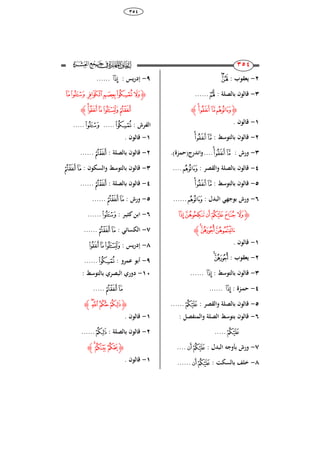 ٣٥٤
٣٥٤
٢- يعقوب : هُنَّ .
٣- قالون بالصلة : هُمُ ......
﴿ وَءَاتُوهُم مَّآ أَنفَقُوا۟ ﴾
١- قالون .
٢- قالون بالتوسط : مَّآ أَنفَقُوا۟
٣- ورش : مَّآ أَنفَقُوا۟ .....واندرج(حمزة).
٤- قالون بالصلة والقصر : وَءَاتُوهُم ....
٥- قالون بالتوسط : مَّآ أَنفَقُوا۟
٦- ورش بوجهي البدل : وَءَاتُوهُم ......
﴿ وَلَا جُنَاحَ عَلَيْكُمْ أَن تَنكِحُوهُنَّ إِذَآ
ءَاتَيْتُمُوهُنَّ أُجُورَهُنَّ ﴾
١- قالون .
٢- يعقوب : أُجُورَهُنَّ
٣- قالون بالتوسط : إِذَآ ......
٤- حمزة : إِذَآ ......
٥- قالون بالصلة والقصر : عَلَيْكُمْ ......
٦- قالون بتوسط الصلة والمنفصل :
عَلَيْكُمْ .....
٧- ورش بأوجه البدل : عَلَيْكُمْ أَن ....
٨- خلف بالسكت : عَلَيْكُمْ أَن ......
٩- إدريس : إِذَآ ......
﴿ وَلَا تُمْسِكُوا۟ بِعِصَمِ ٱلْكَوَافِرِ وَسْـَٔلُوا۟ مَآ
أَنفَقْتُمْ وَلْيَسْـَٔلُوا۟ مَآ أَنفَقُوا۟ ﴾
الفرش : تُمْسِكُوا۟ ..... وَسْـَٔلُوا۟ .....
١- قالون .
٢- قالون بالصلة : أَنفَقْتُمْ ......
٣- قالون بالتوسط والسكون : مَآ أَنفَقْتُمْ
٤- قالون بالصلة : أَنفَقْتُمْ ......
٥- ورش : مَآ أَنفَقْتُمْ ......
٦- ابن كثير : وَسْـَٔلُوا۟ ......
٧- الكسائي : مَآ أَنفَقْتُمْ ......
٨- إدريس : وَلْيَسْـَٔلُوا۟ مَآ أَنفَقُوا۟
٩- أبو عمرو : تُمَسِّكُوا۟ ......
١٠- دوري البصري بالتوسط :
مَآ أَنفَقْتُمْ .....
﴿ ذَٰلِكُمْ حُكْمُ ٱللَّهِ ﴾
١- قالون .
٢- قالون بالصلة : ذَٰلِكُمْ ......
﴿ يَحْكُمُ بَيْنَكُمْ ﴾
١- قالون .